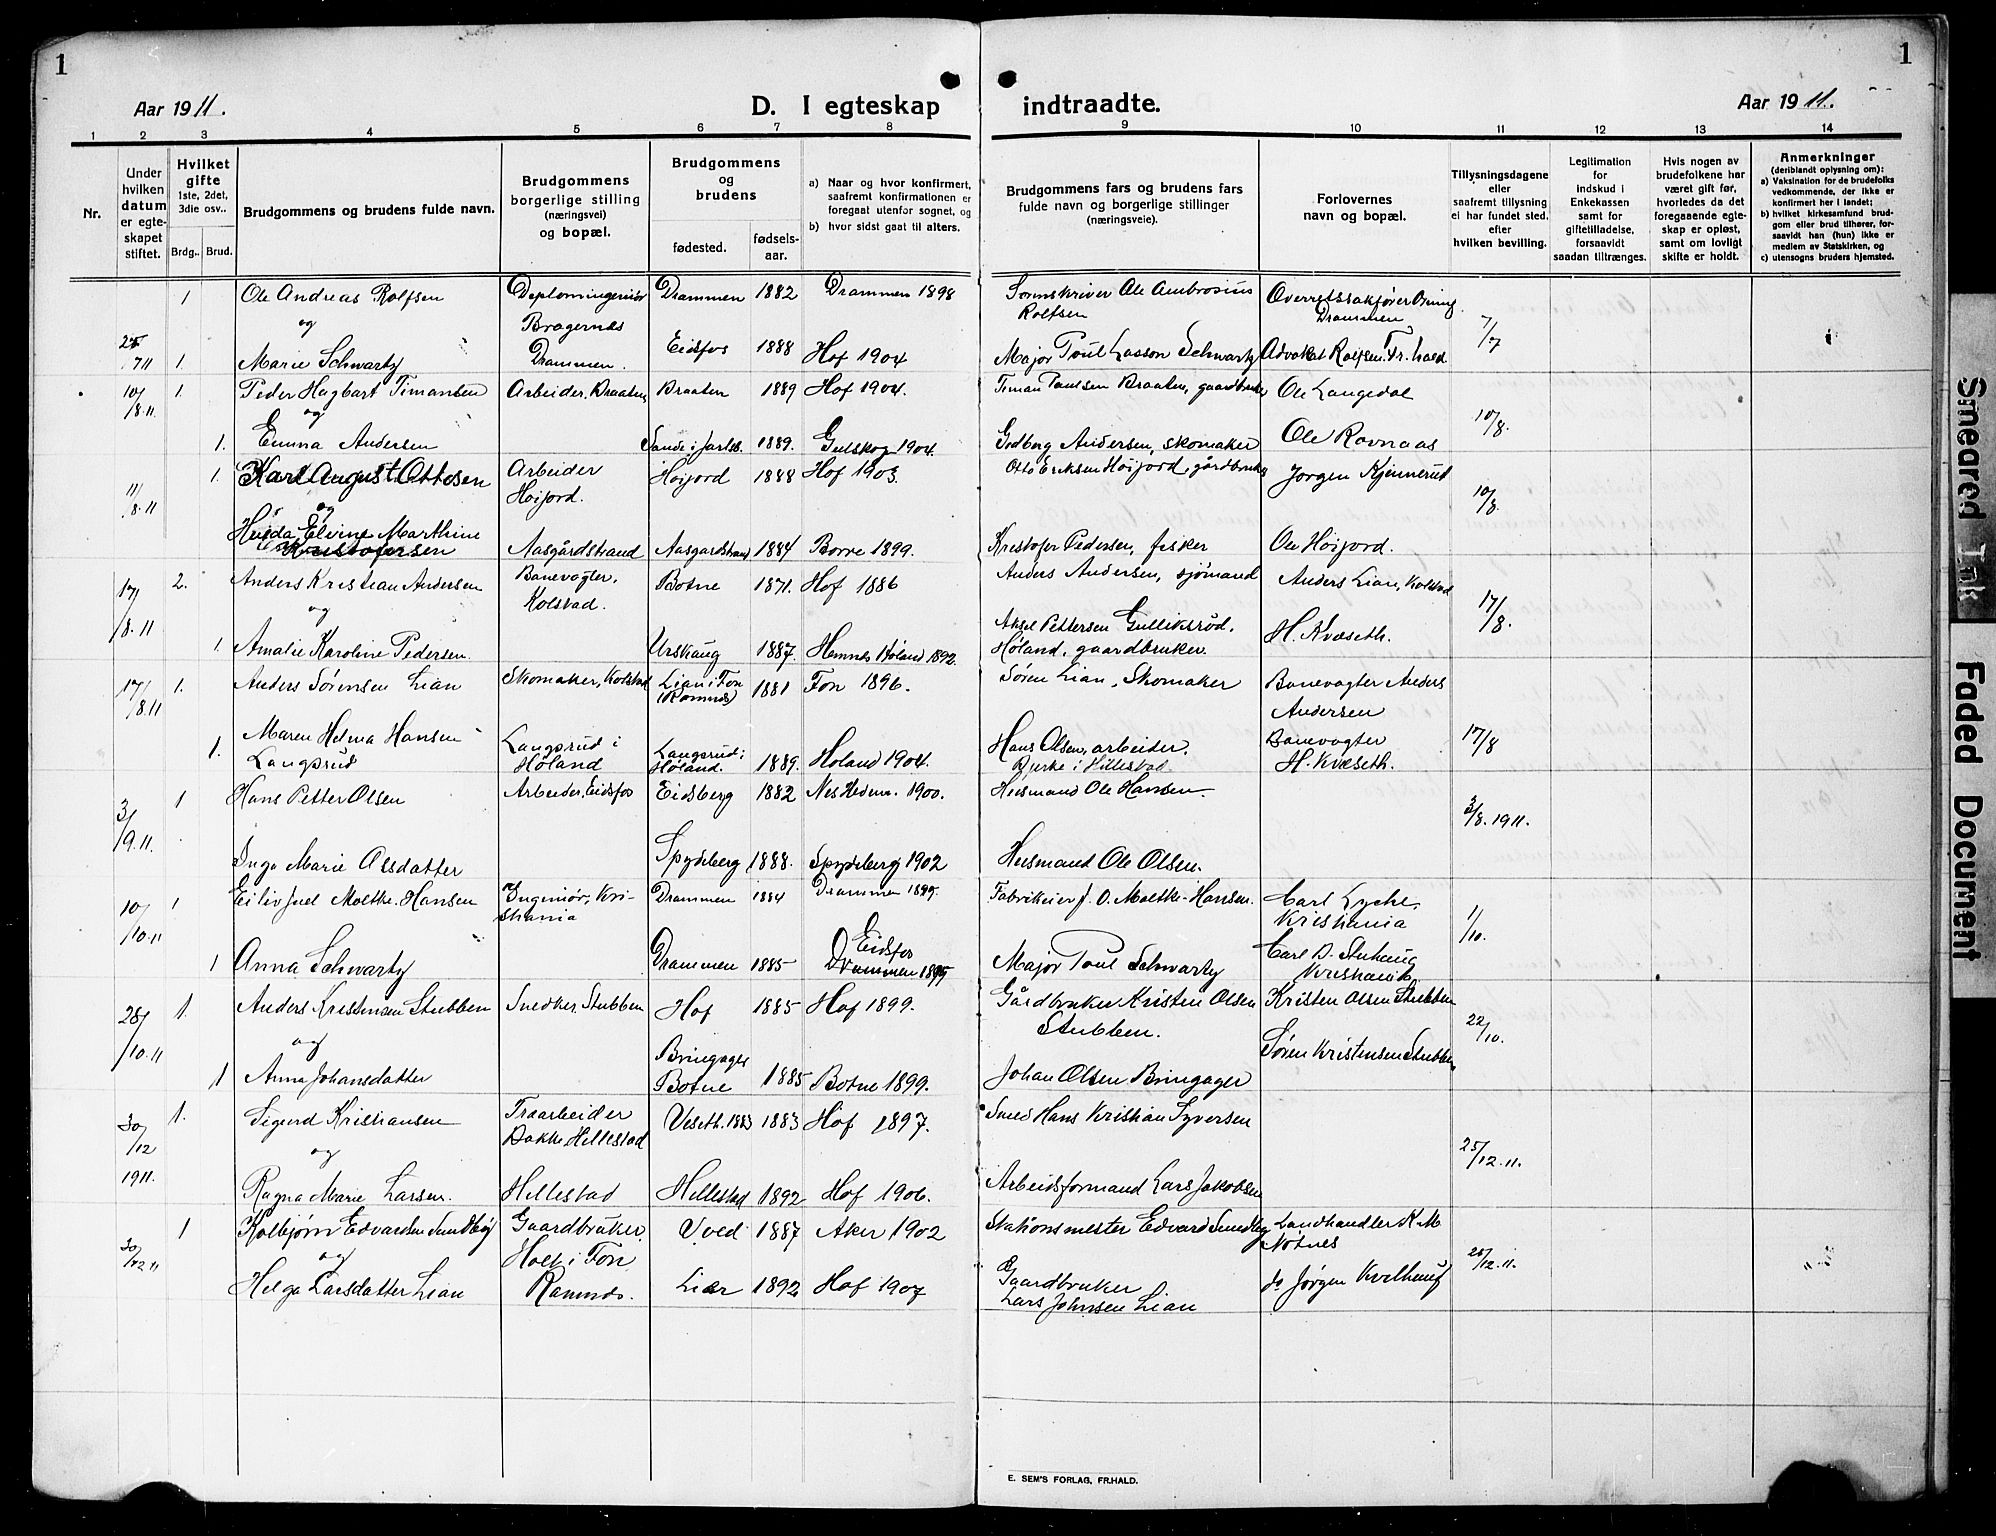 1
1
Aar 1911.
D. I egteskap indtraadte.
Aar 1911.
1 2 3 4 5 6 7 8 9 10 11 12 13 14
Nr.
Under hvilken datum er egteskapet stiftet.
Hvilket gifte 1ste, 2det, 3die osv..
Brdg.. Brud.
Brudgommens og brudens fulde navn.
Brudgommens borgerlige stilling (næringsvei) og bopæl.
Brudgommens og brudens
fødested. fødselsaar.
a) Naar og hvor konfirmert, saafremt konfirmationen er foregaat utenfor sognet, og
b) hvor sidst gaat til alters.
Brudgommens fars og brudens fars fulde navn og borgerlige stillinger (næringsveie).
Forlovernes navn og bopæl.
Tillysningsdagene eller saafremt tillysning ei har fundet sted. efter hvilken bevilling.
Legitimation for indskud i Enkekassen samt for giftetilladelse, forsaavidt saadan tiltrænges.
Hvis nogen av brudefolkene har været gift før, hvorledes da det foregaaende egteskap er opløst, samt om lovligt skifte er holdt.
Anmerkninger (deriblandt oplysning om):
a) Vaksination for de brudefolks vedkommende, der ikke er konfirmert her i landet;
b) hvilket kirkesamfund brudgom eller brud tilhører, forsaavidt han (hun) ikke er medlem av Statskirken, og
c) utensogns bruders hjemsted.
1 Ole Andreas Rolfsen Drammen 1882 Drammen 1898 Sorenskriver Ole Ambrosius Rolfsen
og Bragernes Drammen 7/7
/7 11 1. Marie Schwartz Drammen. Eidsfos 1888 Hof 1904 Major Poul Lasson Schwartz Advokat Rolfsen. Fr.hald
10/8.11 1. Peder Hagbart Timansen Arbeider. Braaten Braaten 1889 Hof 1904. Timan Paulsen Braaten, gaardbruker Ole Langedal
og 10/8.
1. Emma Andersen Sande i Jarlsb. 1889. Gulskog 1904. Godberg Andersen, skomaker Ole Ravnaas
11/8.11 1. Karl August Ottesen Arbeider Høijord. Høijord 1888 Hof 1903. Otto Eriksen Høijord, gårdbruker Jørgen Kjennerud
og 10/8.
Elvine Marthine Kristofersen Aasgårdstrand Aasgardstrand 1884 Borre 1899. Kristofer Pedersen, fisker Ole Høijord.
17/8.11 2. Anders Kristian Andersen Banevogter, Kolstad. Botne 1871. Hof 1886 Anders Andersen, sjømand Anders Lian, Kolstad
og 17/8.
1. Amalie Karoline Pedersen. Urskaug 1887. Hemnes Høland 1892. Aksel Pettersen Gulliksrud. Høland, gaardbruker. H. Kvæseth.
17/8.11 1. Anders Sørensen Lian Skomaker, Kolstad Lian i Fon (Ramnes) 1881 Fon 1896. Søren Lian, Skomaker Banevogter Anders Andersen
1. Maren Helma Hansen Langsrud Langsrud i Høland Langsrud i Høland. 1889. Høland 1904. Hans Olsen, arbeider. Bjerke i Hillestad. Banevogter H. Kvæseth. 17/8
3/9.11. 1 Hans Petter Olsen Arbeider, Eidsfos Eidsberg 1882 Nes Hedem. 1900. Husmand Ole Hansen. 3/8.1911.
Inga Marie Olsdatter Spydeberg 1888. Spydeberg 1902 Husmand Ole Olsen.
10/10.11 1 Eiliv Juel Moltke-Hansen Ingeniør, Kristiania Drammen 1884 Drammen Fabrikeier J. O. Moltke-Hansen. Carl Lyche, Kristiania 1/10.
1 Anna Schwartz Drammen 1885 Eidsfos Drammen Major Poul Schwartz Carl D. Stuhaug Kristiania
28/10.11 1. Anders Kristensen Stubben Snedker, Stubben Hof 1885 Hof 1899. Gårdbruker Kristen Olsen Stubben. Kristen Olsen Stubben
og 22/10.
1 Anna Johansdatter Bringager Botne 1885 Botne 1899. Johan Olsen Bringager Søren Kristensen Stubben
30/12 1911. 1. Sigurd Kristiansen Træarbeider Bakke Hellestad Veseth. 1883 1883 Hof 1897. Smed Hans Kristian Syversen
og 25/12.11.
Ragna Marie Larsen. Hellestad Hellestad 1892 Hof 1906. Arbeidsformand Lars Jakobsen
30/12 11 1 Kolbjørn Edvardsen Sundby Gaardbruker. 1887 Aker 1902 Stationsmester Edvard Sundby Landhandler K M Nøtnes
og Holt i Fon /12.11.
Helga Larsdatter Lian Ramnes. Lier 1892 Hof 1907 Gaardbruker Lars Johnsen Lian do Jørgen
E. SEM'S FORLAG, FR.HALD.
Smeared Ink
Faded Document